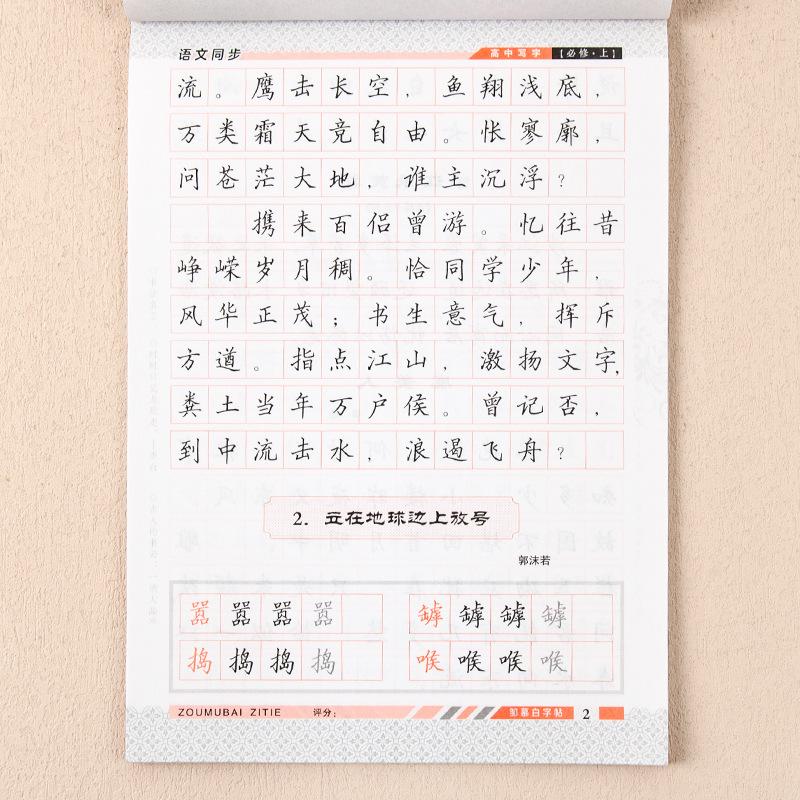 语文同步 高中写字 【必修·上】
流。鹰击长空，鱼翔浅底，
万类霜天竞自由。怅寥廓，
问苍茫大地，谁主沉浮？
携来百侣曾游。忆往昔
峥嵘岁月稠。恰同学少年，
风华正茂；书生意气，挥斥
方遒。指点江山，激扬文字，
粪土当年万户侯。曾记否，
到中流击水，浪遏飞舟？
2. 立在地球边上放号
郭沫若
嚣 嚣 嚣 嚣 罅 罅 罅 罅
捣 捣 捣 捣 喉 喉 喉 喉
ZOUMUBAI ZITIE 评分： 邹慕白字帖 2